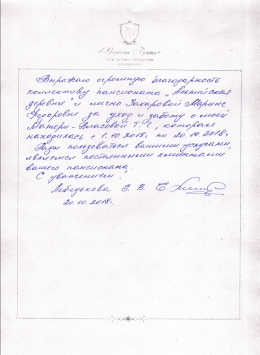 Выражаю огромную благодарность
коллективу пансионата "Английская
деревня" и лично Захаровой Марине
Федоровне за уход и заботу о моей
Матери - Власовой Т. С., которая
находилась с 1.10.2018г. по 20.10.2018г.
Рады пользоваться вашими услугами,
являемся постоянными клиентами
вашего пансионата.
С уважением!
Лебедькова Е. В.
20.10.2018г.